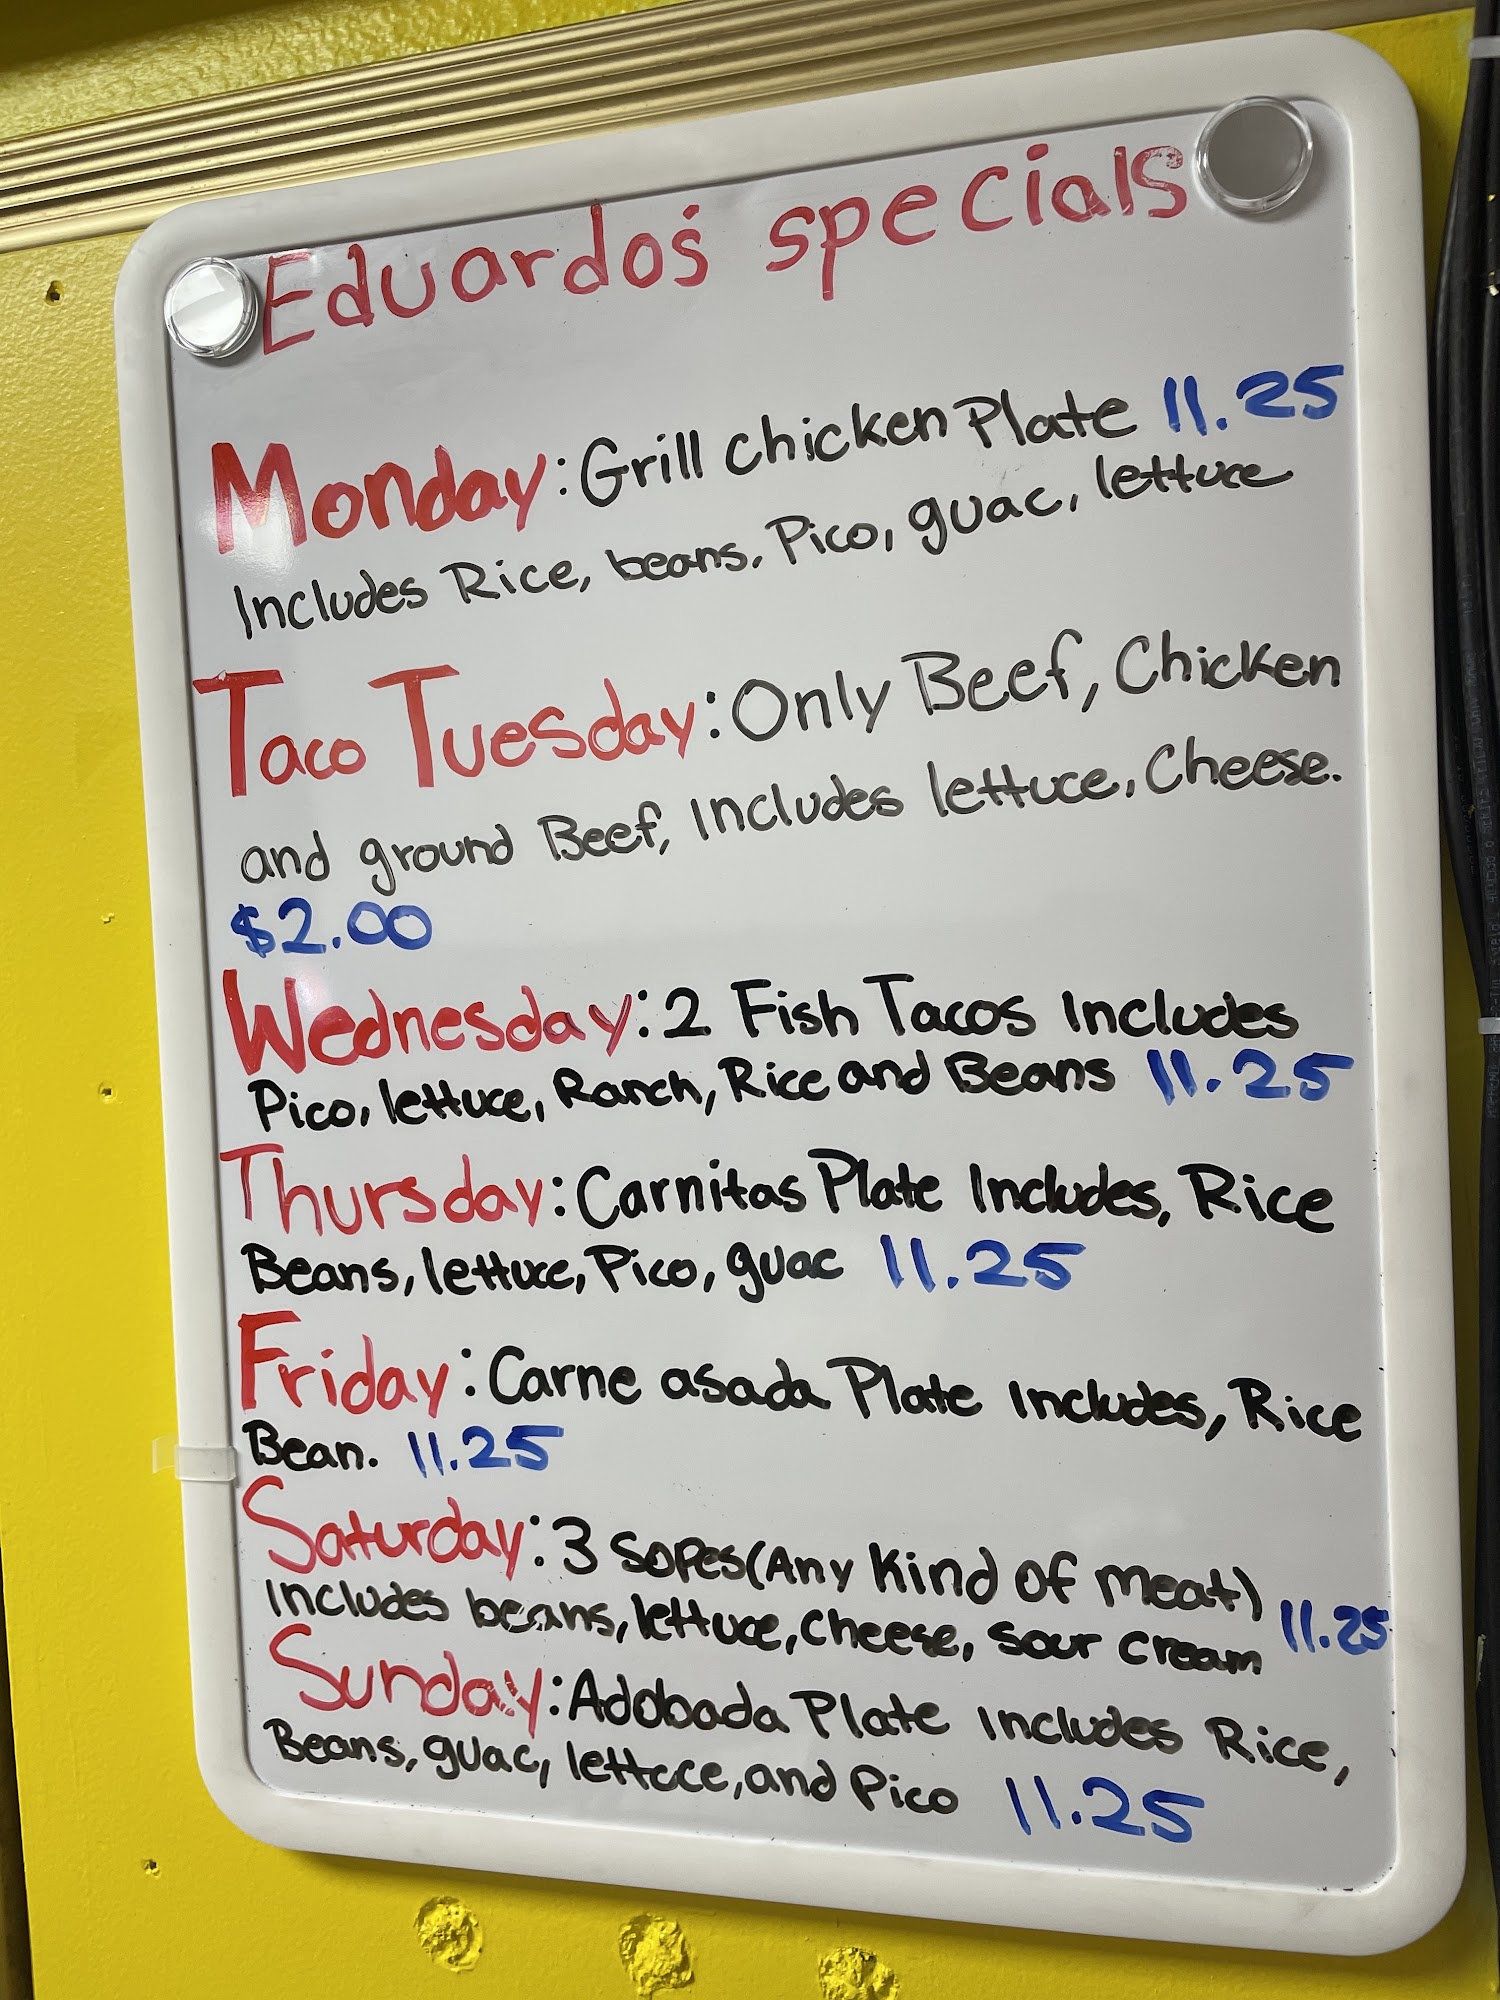 Eduardo's specials
Monday: Grill chicken Plate 11.25
Includes Rice, beans, Pico, guac, lettuce
Taco Tuesday: Only Beef, Chicken
and ground Beef, Includes lettuce, Cheese.
$2.00
Wednesday: 2 Fish Tacos Includes
Pico, lettuce, Ranch, Rice and Beans 11.25
Thursday: Carnitas Plate Includes, Rice
Beans, lettuce, Pico, guac 11.25
Friday: Carne asada Plate Includes, Rice
Bean. 11.25
Saturday: 3 Sopes (Any Kind of meat)
Includes beans, lettuce, Cheese, Sour Cream 11.25
Sunday: Adobada Plate Includes Rice,
Beans, guac, lettuce, and Pico 11.25